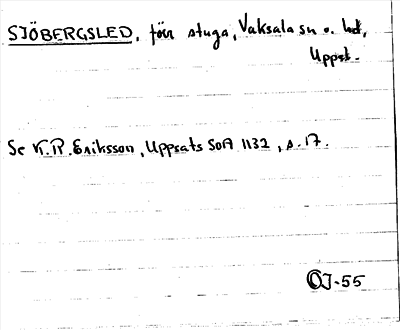 SJÖBERGSLED, förr stuga, Vaksala sn o. hd,
Uppl.
Se K.R. Eriksson, Uppsats SOA 1132, s. 17.
OJ-55